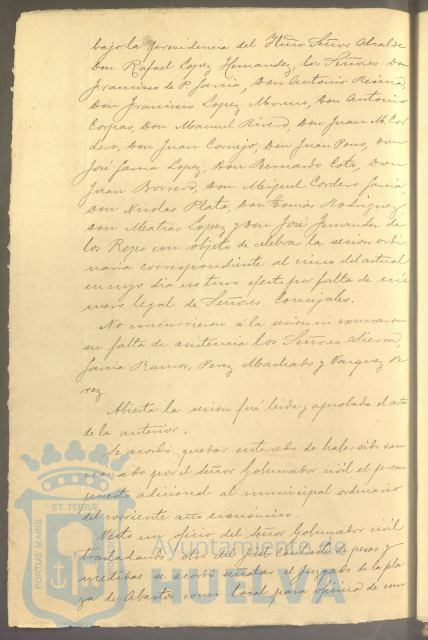 bajo la presidencia del Iltmo Señor Alcalde
Don Rafael Lopez Hernandez, los Señores Don
Francisco de P. Garcia, Don Antonio Resina,
Don Francisco Lopez Moreno, Don Antonio
Corpas, Don Manuel Rivero, Don Juan M. Cor
dero, Don Juan Cornejo, Don Juan Pons, Don
José Garcia Lopez, Don Bernardo Coto, Don
Juan Borrero, Don Miguel Cordero Garcia
Don Nicolas Plata, Don Tomás Rodriguez
Don Matias Lopez y Don José Fernandez de
los Reyes con objeto de celebrar la sesion ordi
naria correspondiente al cinco del actual
en cuyo dia no tuvo efecto por falta de nú
mero legal de Señores Concejales.
No concurrieron á la sesion ni excusaron
su falta de asistencia los Señores Sierra,
Garcia Ramos, Perez Machado y Vazquez Pe
rez
Abierta la sesion fué leida y aprobada el acta
de la anterior.
Se acordó quedar enterado de haber sido san
cionado por el señor Gobernador civil el presu
puesto adicional al municipal ordinario
del corriente año económico.
Visto un oficio del señor Gobernador civil
trasladando otro del fiel contraste de pesas y
medidas se acordó señalar el juzgado de la pla
za de Abastos como local para oficina de com
PORTUS MARIS
ET TERRAE
Ayuntamiento de
HUELVA